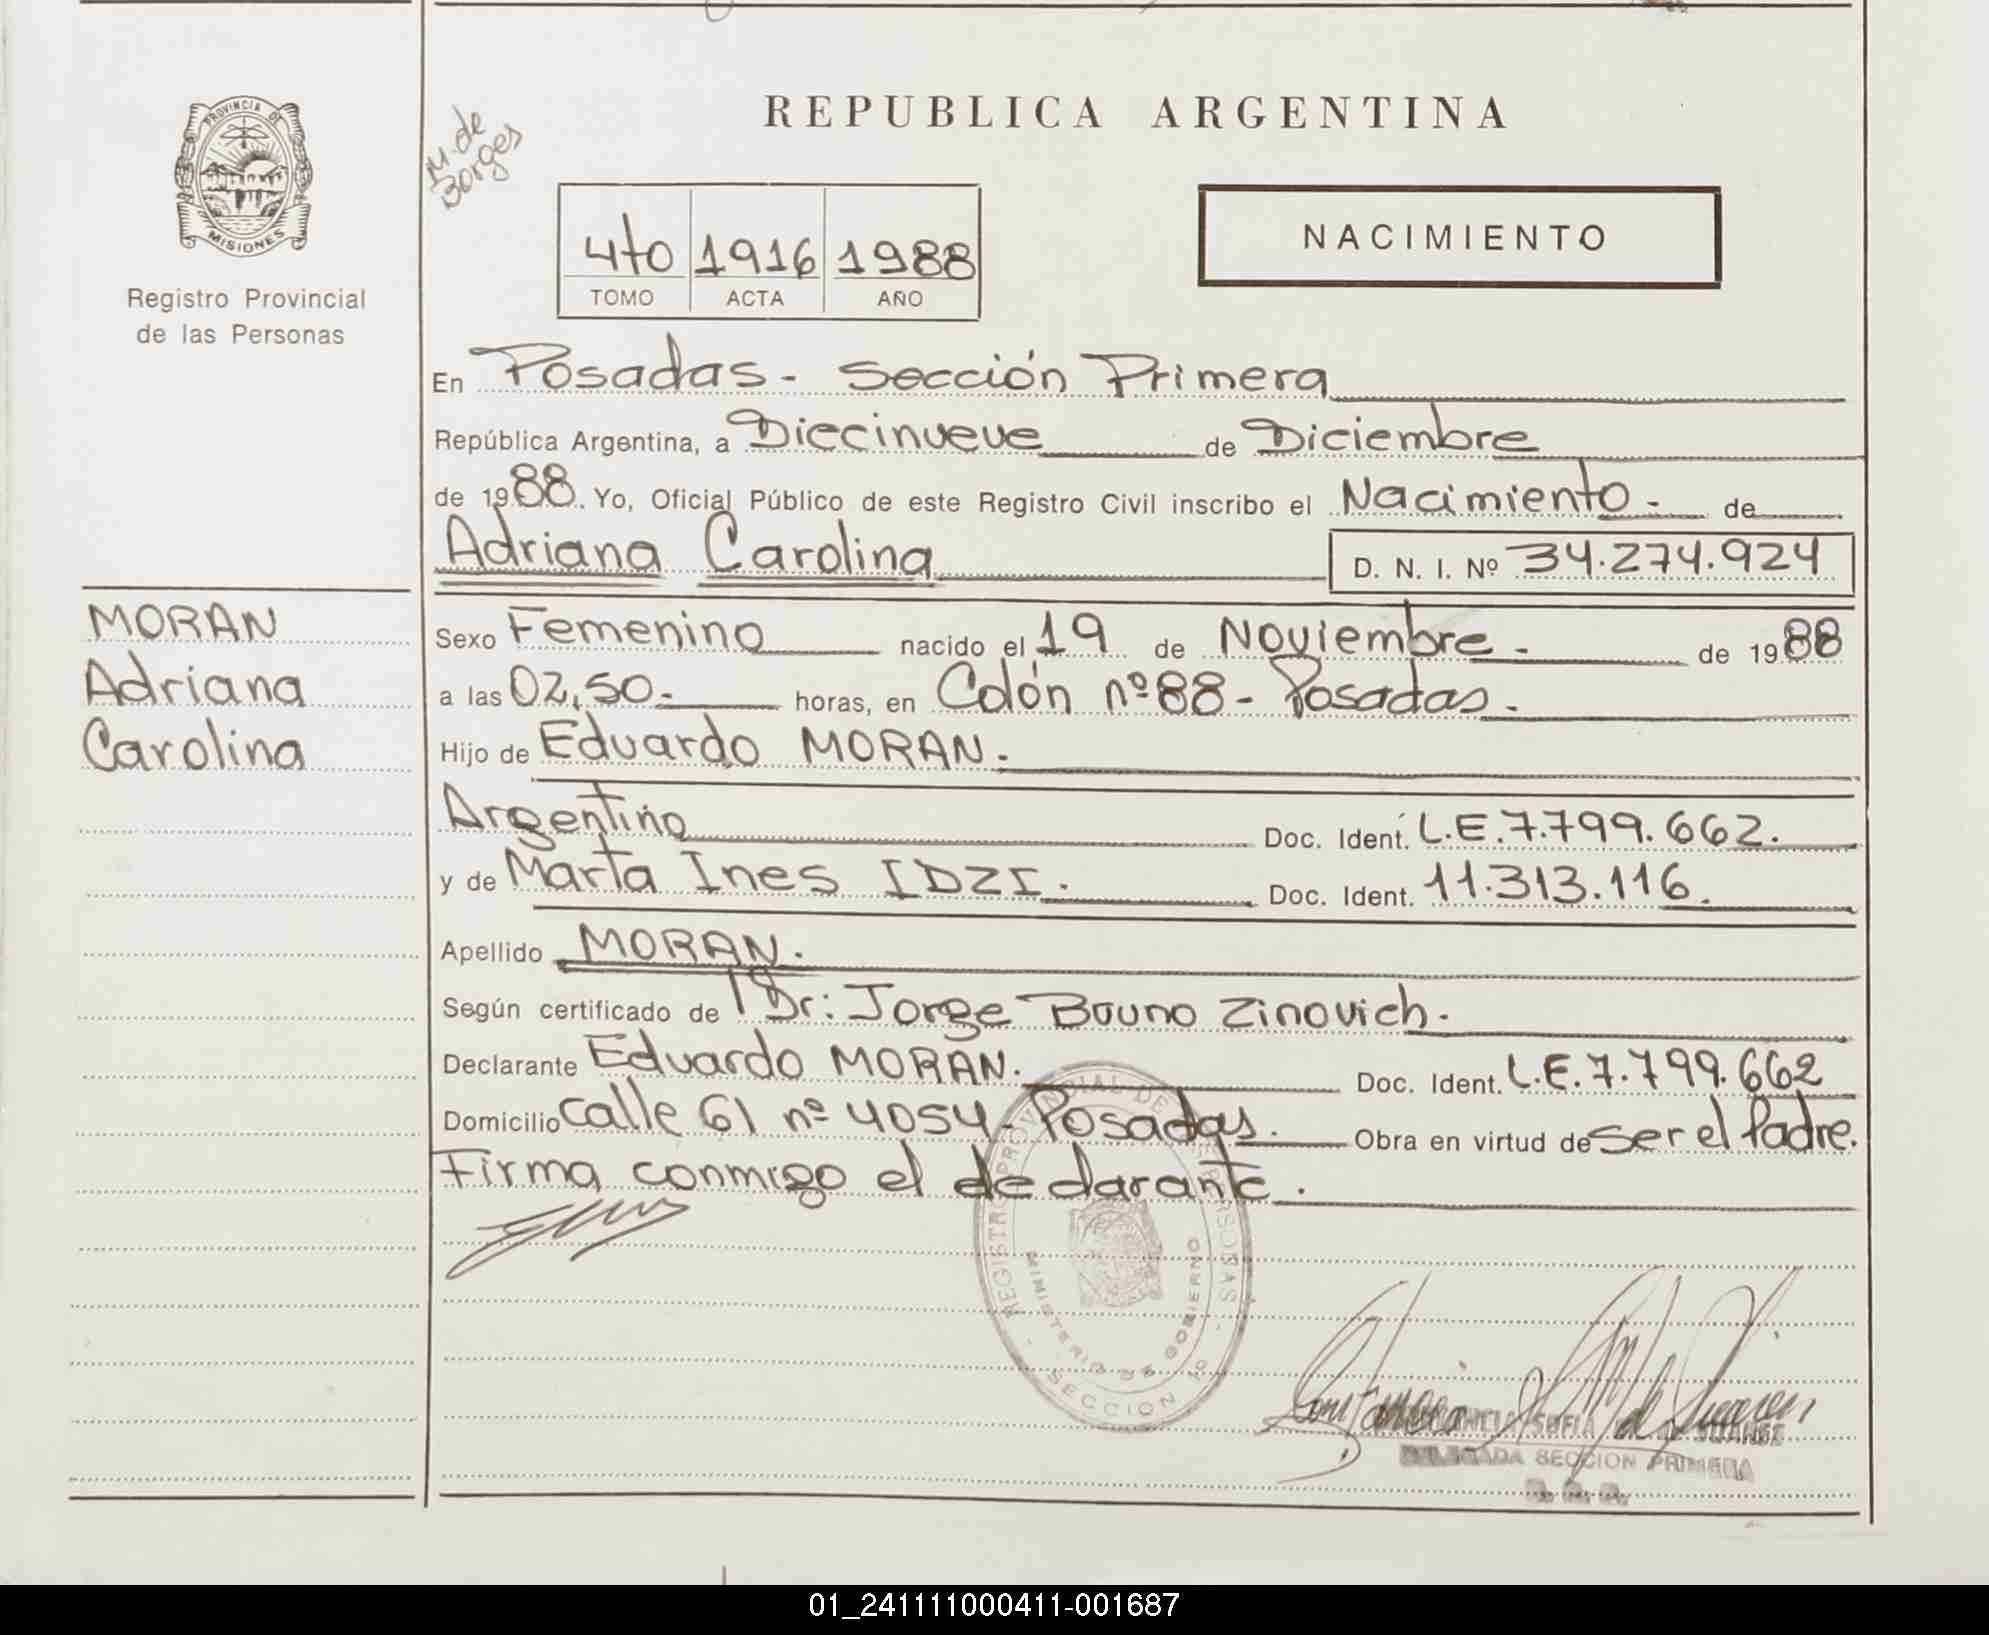 PROVINCIA DE
MISIONES
Registro Provincial
de las Personas
MORAN
Adriana
Carolina
M. de
Borges
REPUBLICA ARGENTINA
4to 1916 1988
TOMO ACTA AÑO
NACIMIENTO
En Posadas - Sección Primera
República Argentina, a Diecinueve de Diciembre
de 1988. Yo, Oficial Público de este Registro Civil inscribo el Nacimiento - de
Adriana Carolina D. N. I. Nº 34.274.924
Sexo Femenino nacido el 19 de Noviembre - de 1988
a las 02,50 - horas, en Colón nº 88 - Posadas -
Hijo de Eduardo MORAN.
Argentino Doc. Ident. L.E. 7.799.662.
y de Marta Ines IDZI. Doc. Ident. 11.313.116.
Apellido MORAN.
Según certificado de Dr: Jorge Bruno Zinovich.
Declarante Eduardo MORAN. Doc. Ident. L.E. 7.799.662
Domicilio calle 61 nº 4054 - Posadas. Obra en virtud de ser el Padre.
Firma conmigo el declarante.
REGISTRO PROVINCIAL DE LAS PERSONAS
MINISTERIO DE GOBIERNO
SECCION 1º
SOFIA
DELEGADA SECCION PRIMERA
01_241111000411-001687